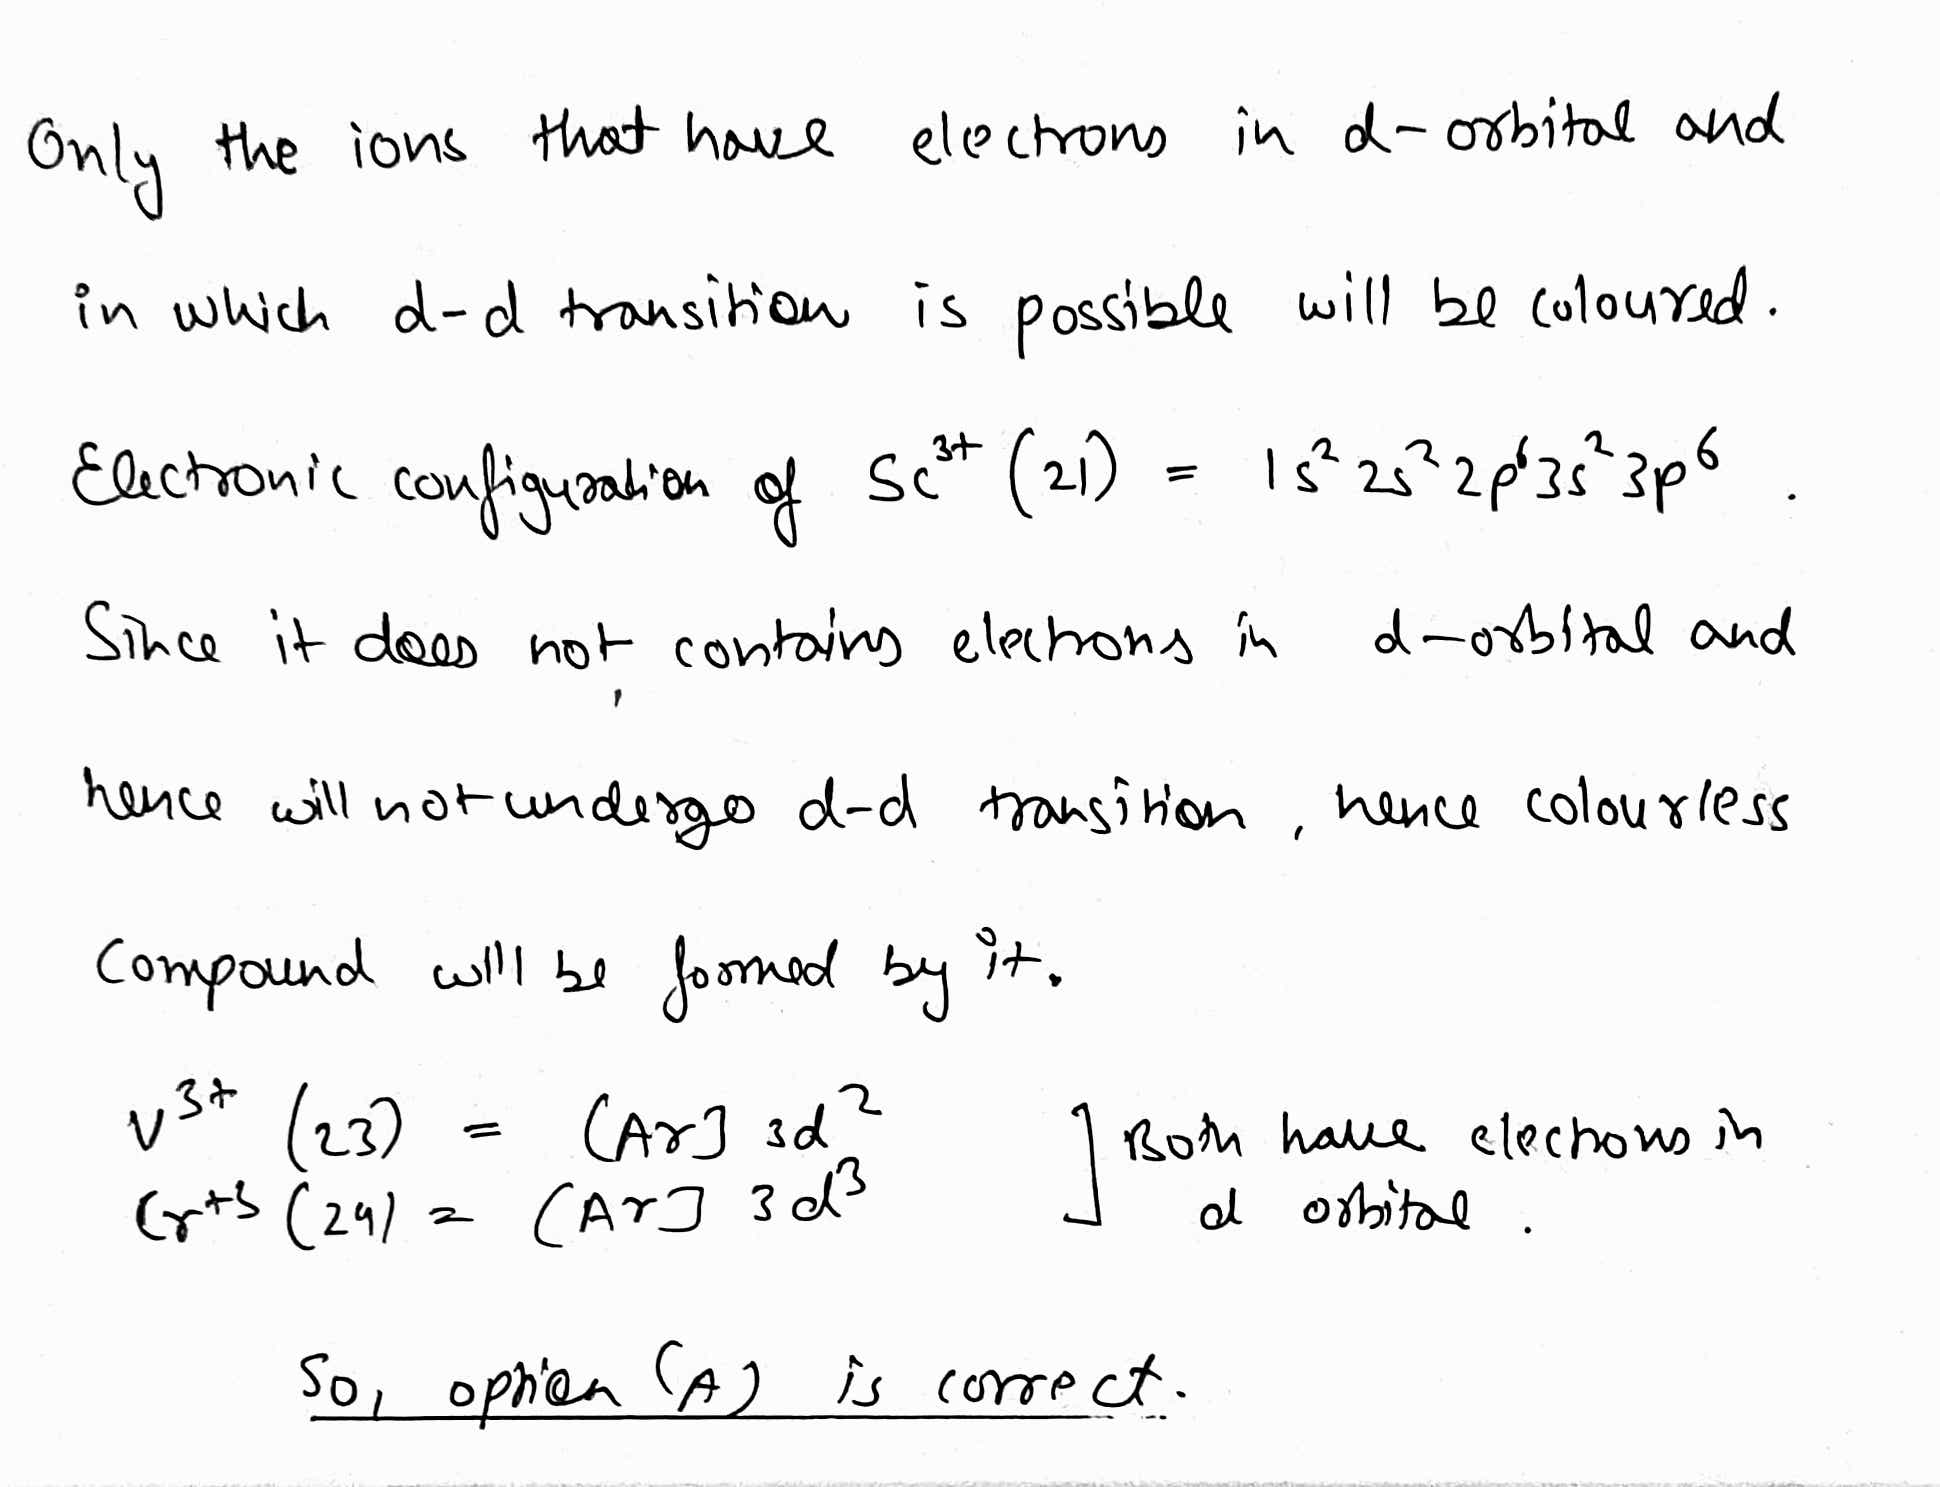 Only the ions that have electrons in d-orbital and
in which d-d transition is possible will be coloured.
Electronic configuration of Sc³⁺ (21) = 1s² 2s² 2p⁶ 3s² 3p⁶ .
Since it does not contains electrons in d-orbital and
hence will not undergo d-d transition, hence colourless
Compound will be formed by it.
V³⁺ (23) = (Ar] 3d² ] Both have electrons in
Cr⁺³ (24) = (Ar] 3d³ d orbital .
So, option (A) is correct.